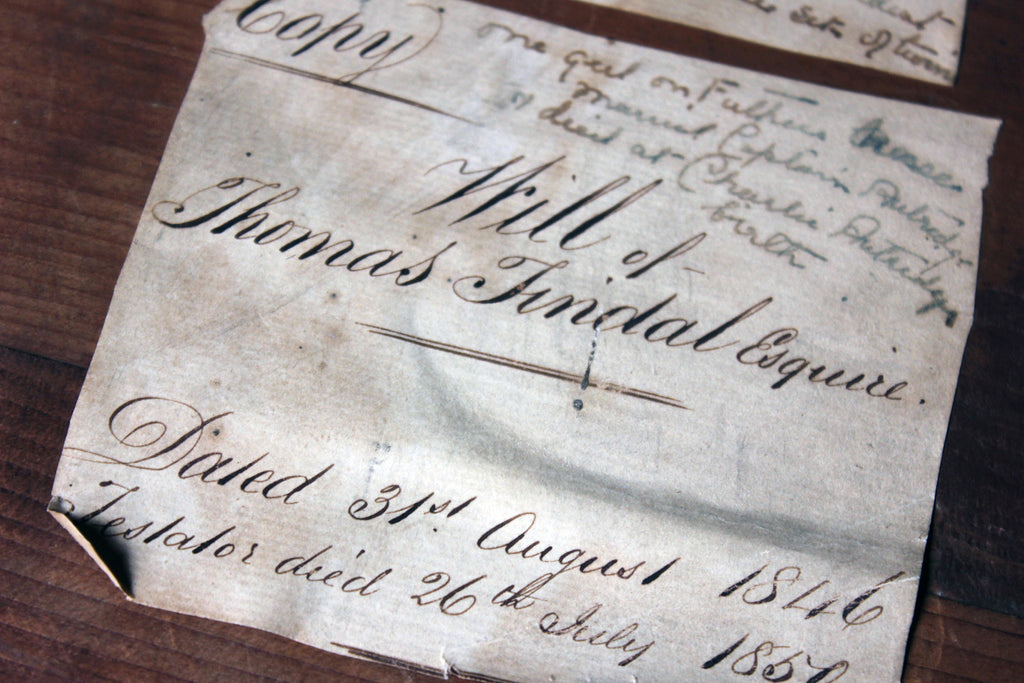 set of twin
Copy
one girl on Father's
married Captain Partridge
died at Charlie Partridge
birth
Will of
Thomas Tindal Esquire.
Dated 31st. August 1846
Testator died 26th July 185